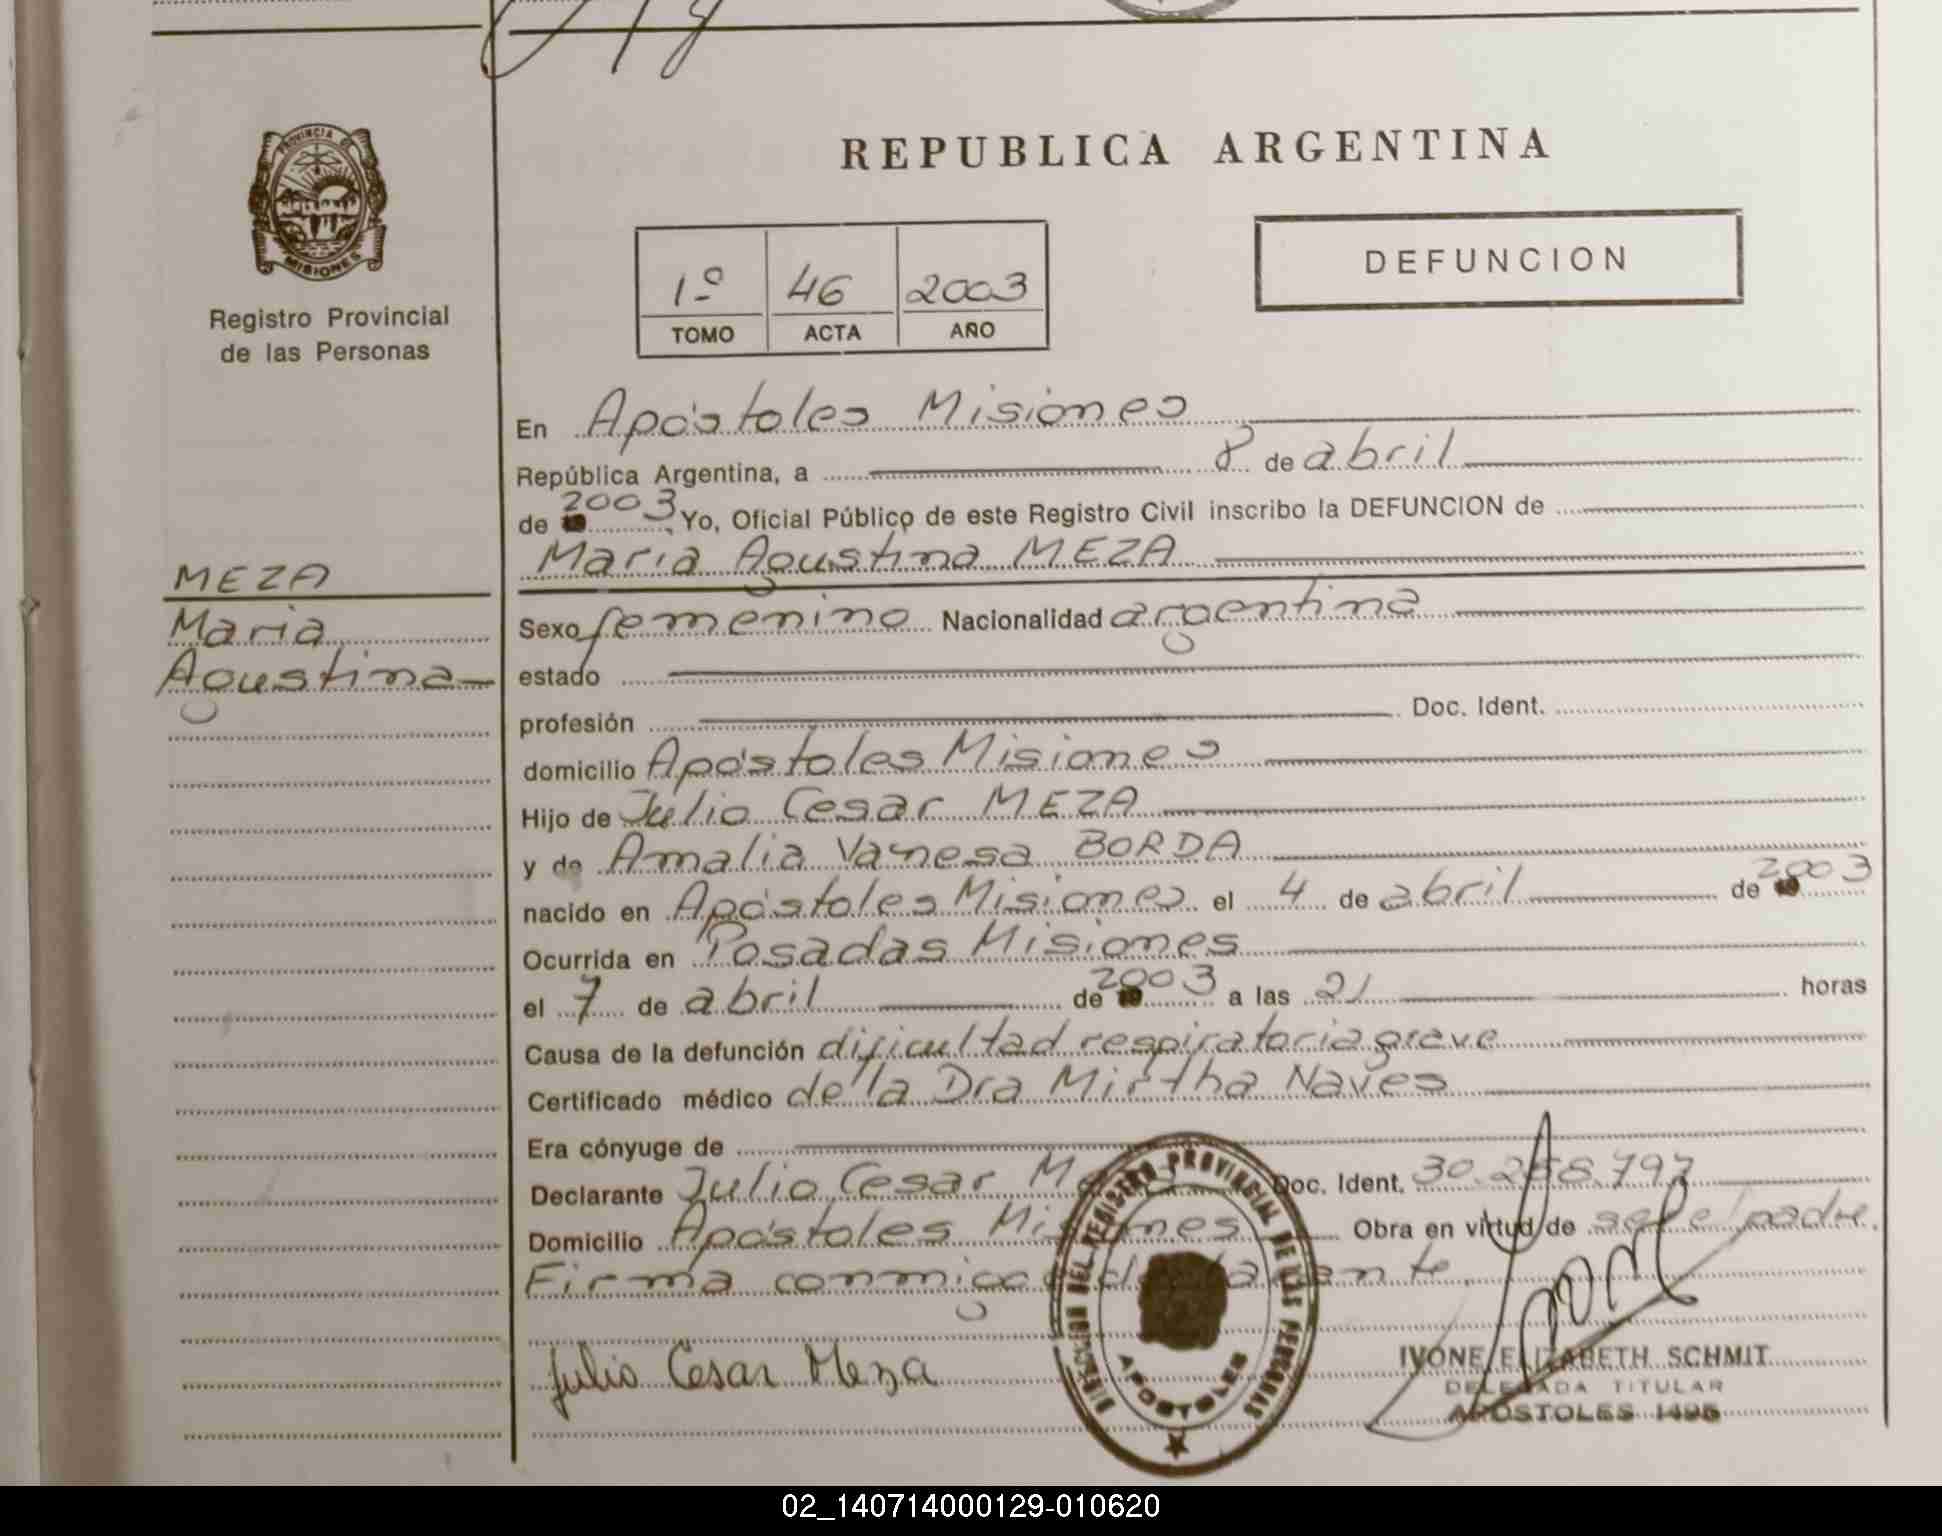 PROVINCIA D
MISIONES
Registro Provincial
de las Personas
MEZA
Maria
Agustina
REPUBLICA ARGENTINA
1º 46 2003
TOMO ACTA AÑO
DEFUNCION
En Apóstoles Misiones
República Argentina, a 8 de abril
de 2003 Yo, Oficial Público de este Registro Civil inscribo la DEFUNCION de
Maria Agustina MEZA
Sexo femenino Nacionalidad argentina
estado
profesión Doc. Ident.
domicilio Apóstoles Misiones
Hijo de Julio Cesar MEZA
y de Amalia Vanesa BORDA
nacido en Apóstoles Misiones el 4 de abril de 2003
Ocurrida en Posadas Misiones
el 7 de abril de 2003 a las 21 horas
Causa de la defunción dificultad respiratoria grave
Certificado médico de la Dra Mirtha Naves
Era cónyuge de
Declarante Julio Cesar Doc. Ident. 30.258.797
Domicilio Apóstoles Misiones Obra en virtud de ser el padre.
Firma conmigo el declarante.
Julio Cesar Meza
DIRECCION DEL REGISTRO PROVINCIAL DE LAS PERSONAS
APOSTOLES
IVONE ELIZABETH SCHMIT
DELEGADA TITULAR
APOSTOLES 1495
02_140714000129-010620